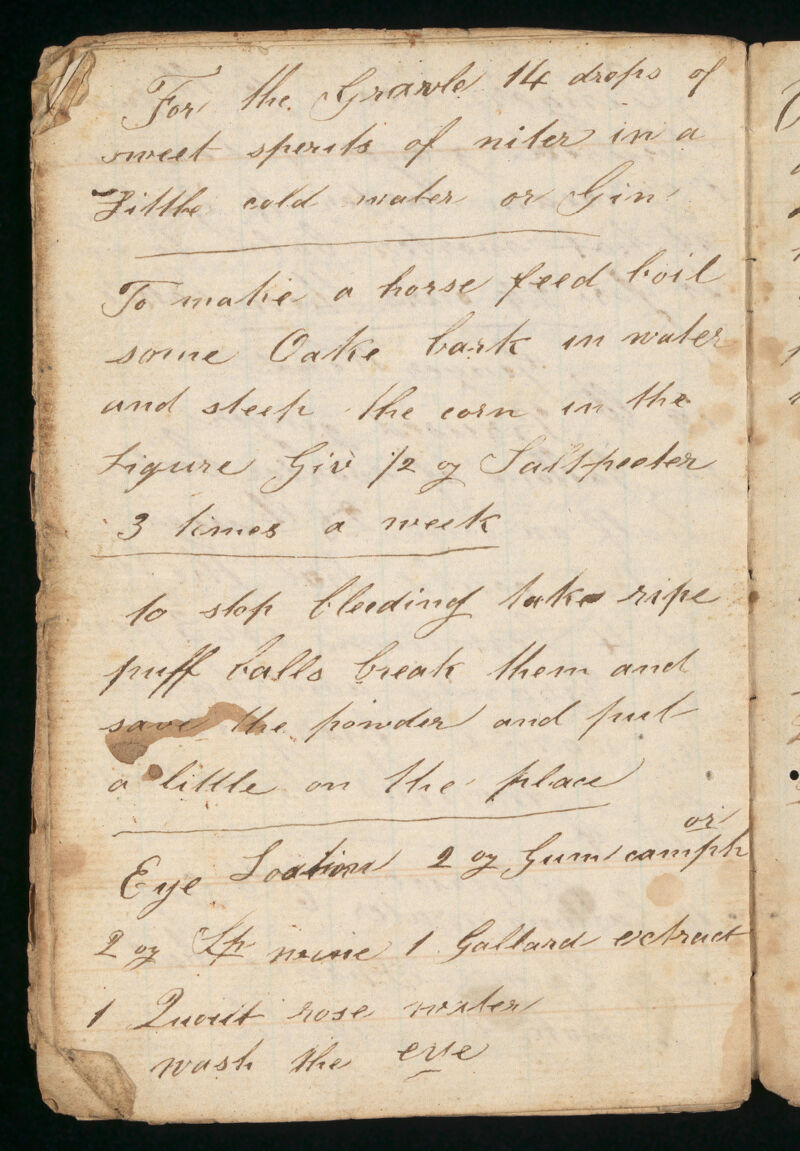 For the Gravle 14 drops of
sweet sperits of niter in a
Little cold water or Gin
To make a horse feed boil
some Oake bark in water
and steep the corn in the
Liqure Giv 1/2 oz Saltpeeter
3 times a week
to stop bleeding take ripe
puff balls break them and
save the powder and put
a little on the place
or
Eye Loation 2 oz Gum camph
2 oz Sp wine 1 Gallard extract
1 Quort rose water
wash the eye